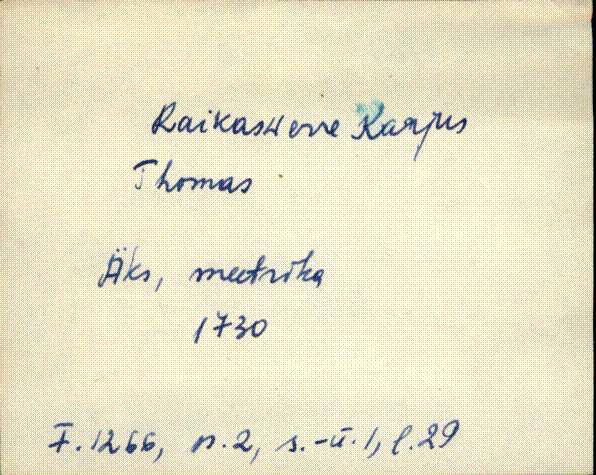 Raikaswerre Karjus
Thomas
Äks, meetrika
1730
F. 1266, n. 2, s.-ü. 1, l. 29